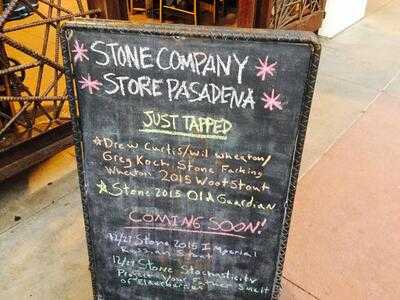 STONE COMPANY
STORE PASADENA
JUST TAPPED
Drew Curtis/Wil Wheaton/
Greg Koch Stone Farking
Wheaton 2015 Wootstout
Stone 2015 Old Guardian
COMING SOON!
12/27 Stone 2015 Imperial
Russian Stout
12/27 Stone Stochasticity
Project Your Father Smelt
of Elderberries